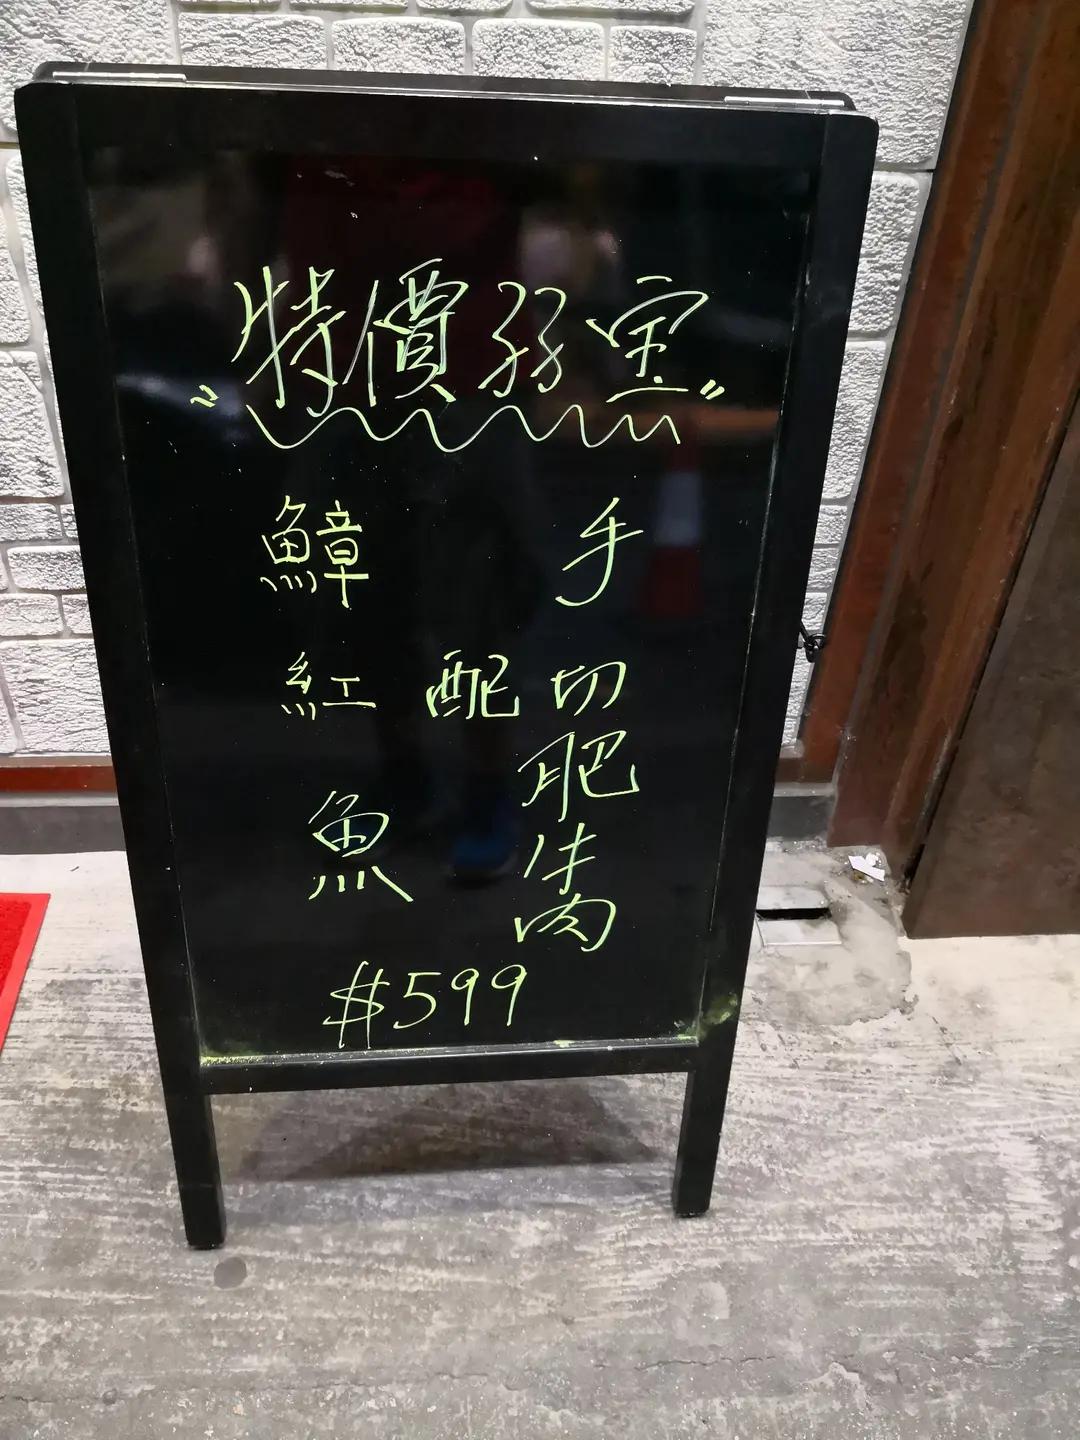 "特價孖宝"
鱆紅魚
配
手切肥牛肉
$599